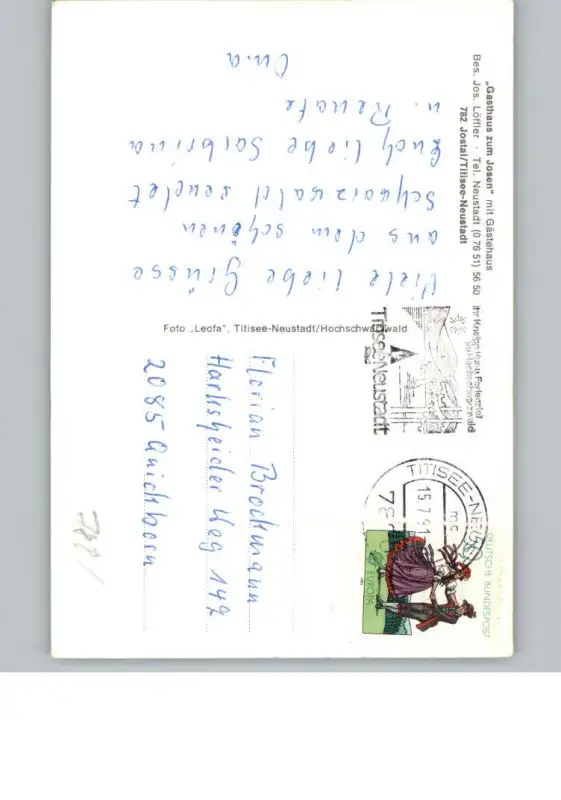 „Gasthaus zum Josen“ mit Gästehaus
Bes. Jos. Löffler · Tel. Neustadt (0 76 51) 56 50
782 Jostal/Titisee-Neustadt
Viele liebe Grüsse
aus dem schönen
Schwarzwald sendet
Euch, liebe Sabrina
u. Renate
Om.a
Foto „Leofa“, Titisee-Neustadt/Hochschwarzwald
TITISEE-NEUSTADT
Ihr Kneipp-Kur- u. Ferienziel
im Hochschwarzwald
TITISEE-NEUST
15.7.91
mc
78
DEUTSCHE BUNDESPOST
EUROPA
Florian Brockmann
Harksheider Weg 147
2085 Quickborn